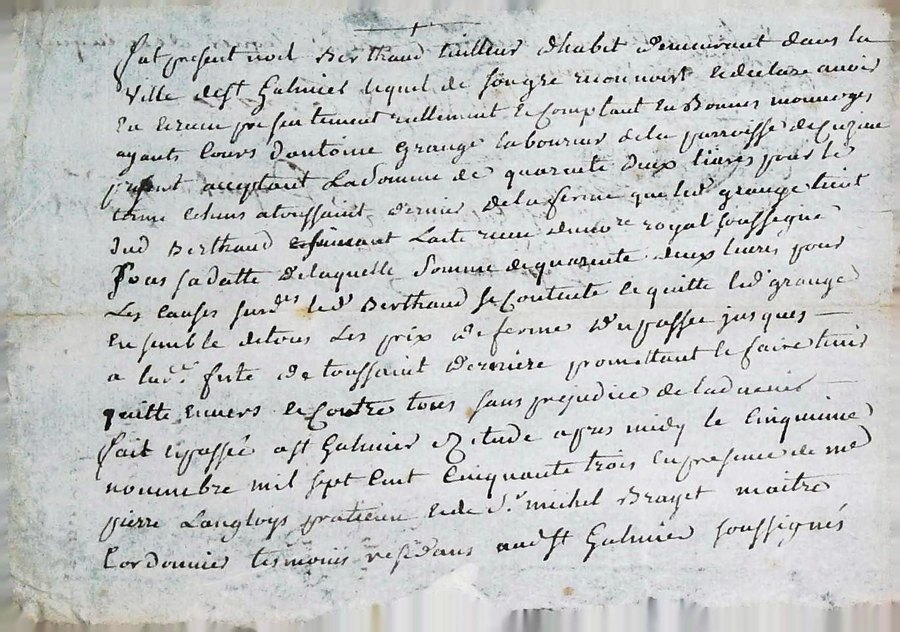 fut present noel Berthaud tailleur d'habit demeurant dans la
Ville de st Galmier lequel de son gre reconnoist et declare avoir
Eu et recu presentement reellement et comptant En Bonnes monnoyes
ayants cours d'antoine grange laboureur de la parroisse de
present acceptant La somme de quarente deux livres pour le
terme echus a toussaint dernier de la ferme que led grange tient
dud Berthaud suivant L'acte recu du no.re royal soussigné
Sous sa datte de laquelle somme de quarente deux livres pour
Les causes surd.es led Berthaud se contente et quitte led grange
Ensemble de tous Les prix de ferme du passée jusques
a lad.e feste de toussaint derniere promettent le faire tenir
quitte envers et contre tous sans prejudice de
fait et passée a st Galmier Etude apres midy le cinquieme
novembre mil sept cent cinquante trois En presence de me
pierre Langloys praticien et de s.r michel Brayet maitre
Cordonnier tesmoins residans aud st Galmier soussignés